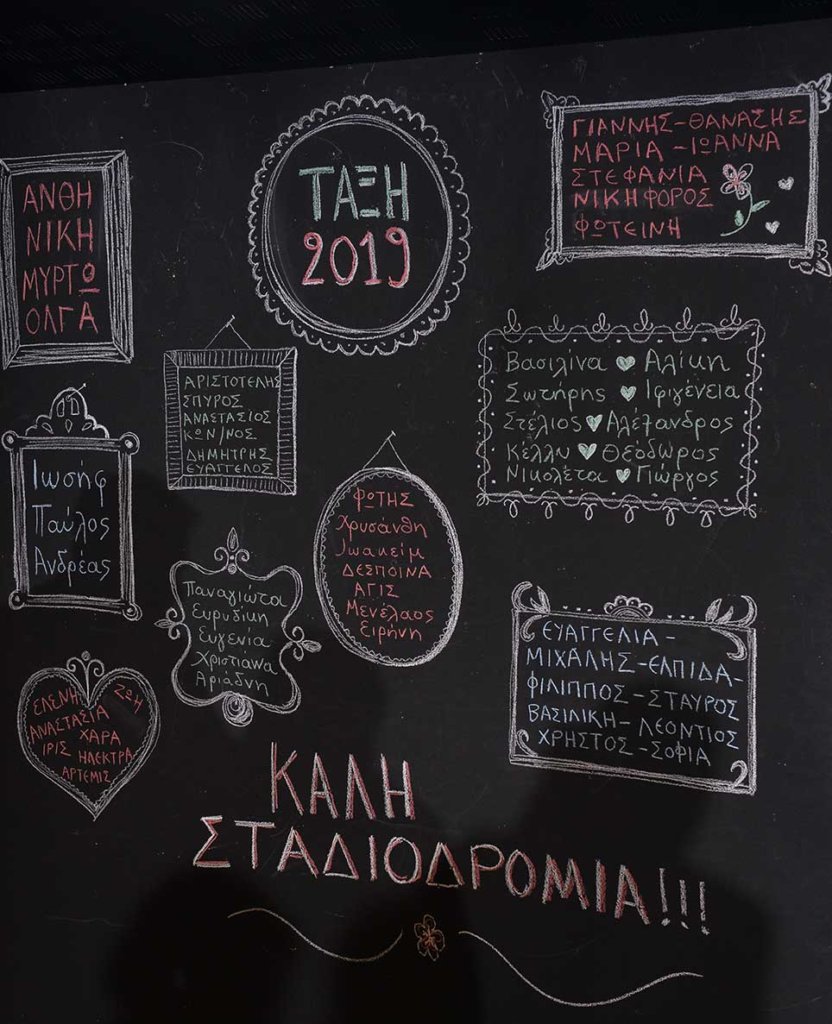 ΤΑΞΗ
2019
ΑΝΘΗ
ΝΙΚΗ
ΜΥΡΤΩ
ΟΛΓΑ
ΓΙΑΝΝΗΣ-ΘΑΝΑΣΗΣ
ΜΑΡΙΑ-ΙΩΑΝΝΑ
ΣΤΕΦΑΝΙΑ
ΝΙΚΗΦΟΡΟΣ
ΦΩΤΕΙΝΗ
ΑΡΙΣΤΟΤΕΛΗΣ
ΣΠΥΡΟΣ
ΑΝΑΣΤΑΣΙΟΣ
ΚΩΝ/ΝΟΣ
ΔΗΜΗΤΡΗΣ
ΕΥΑΓΓΕΛΟΣ
Βασιλίνα ♥ Αλίκη
Σωτήρης ♥ Ιφιγένεια
Στέλιος ♥ Αλέξανδρος
Κέλλυ ♥ Θεόδωρος
Νικολέτα ♥ Γιώργος
Ιωσήφ
Παύλος
Ανδρέας
ΦΩΤΗΣ
Χρυσάνθη
Ιωακείμ
ΔΕΣΠΟΙΝΑ
ΑΓΙΣ
Μενέλαος
Ειρήνη
Παναγιώτα
Ευρυδίκη
Ευγενία
Χριστιάνα
Αριάδνη
ΕΥΑΓΓΕΛΙΑ-
ΜΙΧΑΛΗΣ-ΕΛΠΙΔΑ-
ΦΙΛΙΠΠΟΣ-ΣΤΑΥΡΟΣ
ΒΑΣΙΛΙΚΗ-ΛΕΟΝΤΙΟΣ
ΧΡΗΣΤΟΣ-ΣΟΦΙΑ
ΕΛΕΝΗ ΖΩΗ
ΑΝΑΣΤΑΣΙΑ
ΧΑΡΑ
ΙΡΙΣ ΗΛΕΚΤΡΑ
ΑΡΤΕΜΙΣ
ΚΑΛΗ
ΣΤΑΔΙΟΔΡΟΜΙΑ!!!